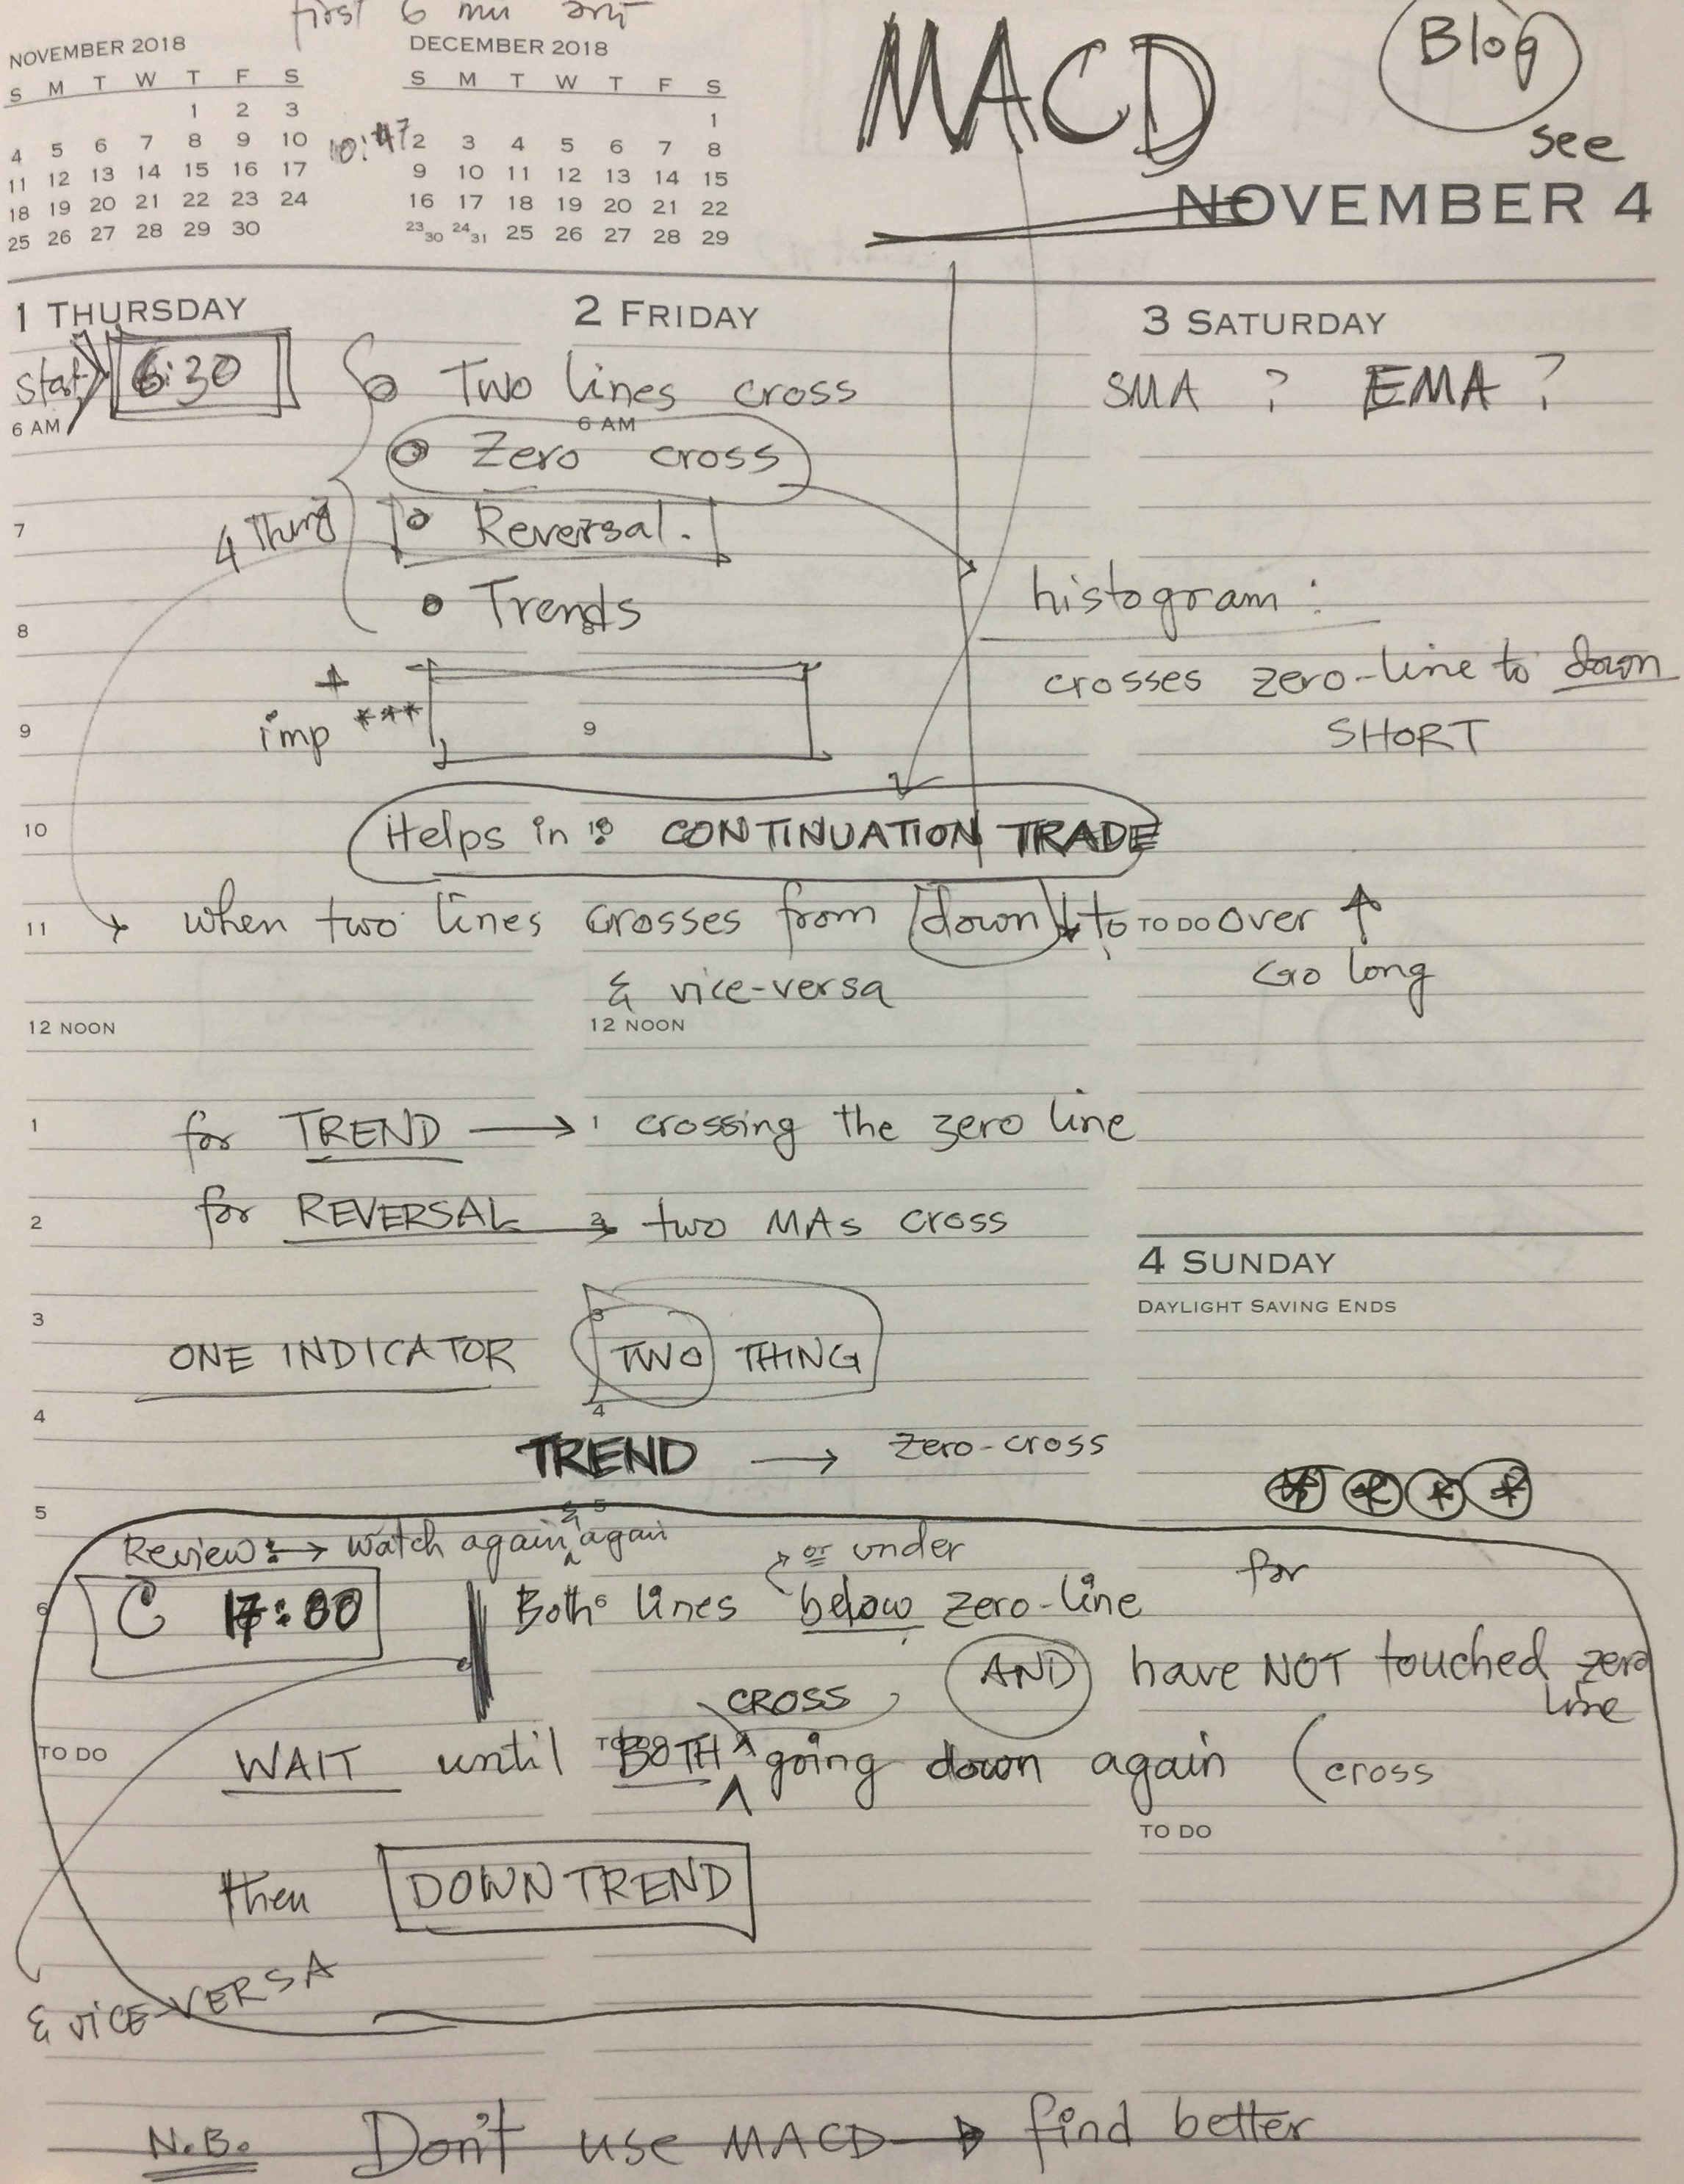 first 6
MACD
Blog
see
NOVEMBER 2018
S M T W T F S
1 2 3
4 5 6 7 8 9 10
11 12 13 14 15 16 17
18 19 20 21 22 23 24
25 26 27 28 29 30
10:47
DECEMBER 2018
S M T W T F S
1
2 3 4 5 6 7 8
9 10 11 12 13 14 15
16 17 18 19 20 21 22
23 30 24 31 25 26 27 28 29
NOVEMBER 4
1 THURSDAY
2 FRIDAY
3 SATURDAY
Start 6:30
Two lines cross
SMA ? EMA ?
6 AM
6 AM
Zero cross
4 Thing
7
Reversal.
histogram :
8
Trends
8
crosses zero-line to down
SHORT
+
imp ***
9
9
10
Helps in : CONTINUATION TRADE
10
11
when two lines crosses from down ↓ to over ↑
TO DO
Go long
& vice-versa
12 NOON
12 NOON
1
for TREND → crossing the zero line
1
2
for REVERSAL → two MAs cross
2
4 SUNDAY
DAYLIGHT SAVING ENDS
3
3
ONE INDICATOR TWO THING
4
4
TREND → zero-cross
5
5
Review: → watch again & again
or under
for
6
C 17:00
Both lines below zero-line
AND have NOT touched zero line
CROSS
TO DO
TO DO
WAIT until BOTH ^ going down again (cross
TO DO
then DOWNTREND
& VICE-VERSA
N.B. Don't use MACD → find better